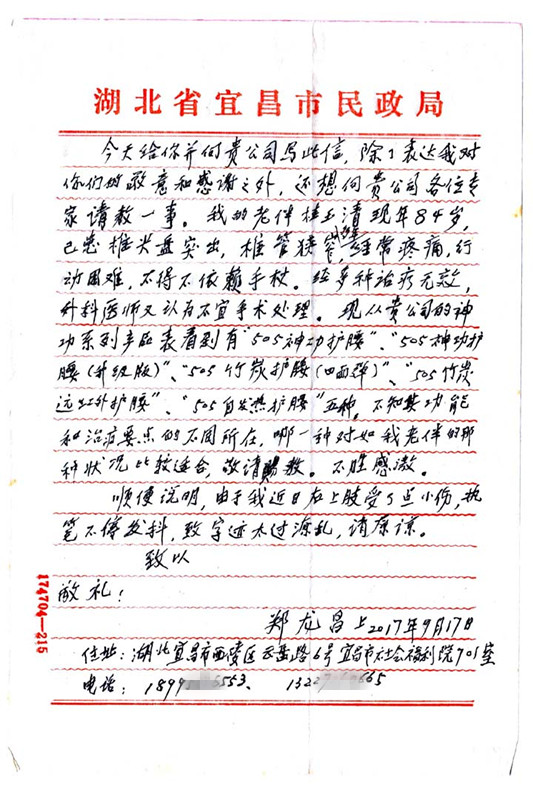 湖北省宜昌市民政局
今天给你并向贵公司写此信，除了表达我对
你们的敬意和感谢之外，还想向贵公司各位专
家请教一事。我的老伴桂玉清现年84岁，
已患椎尖盘突出，椎管狭窄，经常疼痛，行
动困难，不得不依赖手杖。经多种治疗无效，
外科医师又认为不宜手术处理。现从贵公司的神
功系列产品表看到有“505神功护腰”、“505神功护
腰(升级版)”、“505竹炭护腰(四面弹)”、“505竹炭
远红外护腰”、“505自发热护腰”五种，不知其功能
和治疗要点的不同所在，哪一种对如我老伴的那
种状况比较适合，敬请赐教。不胜感激。
顺便说明，由于我近日右上肢受了点小伤，执
笔不停发抖，致字迹太过潦乱，请原谅。
致以
敬礼！
郑龙昌上2017年9月17日
住址：湖北宜昌市西陵区 路6号宜昌市社会福利院701室
电话：189 6553、132 665
174704—215